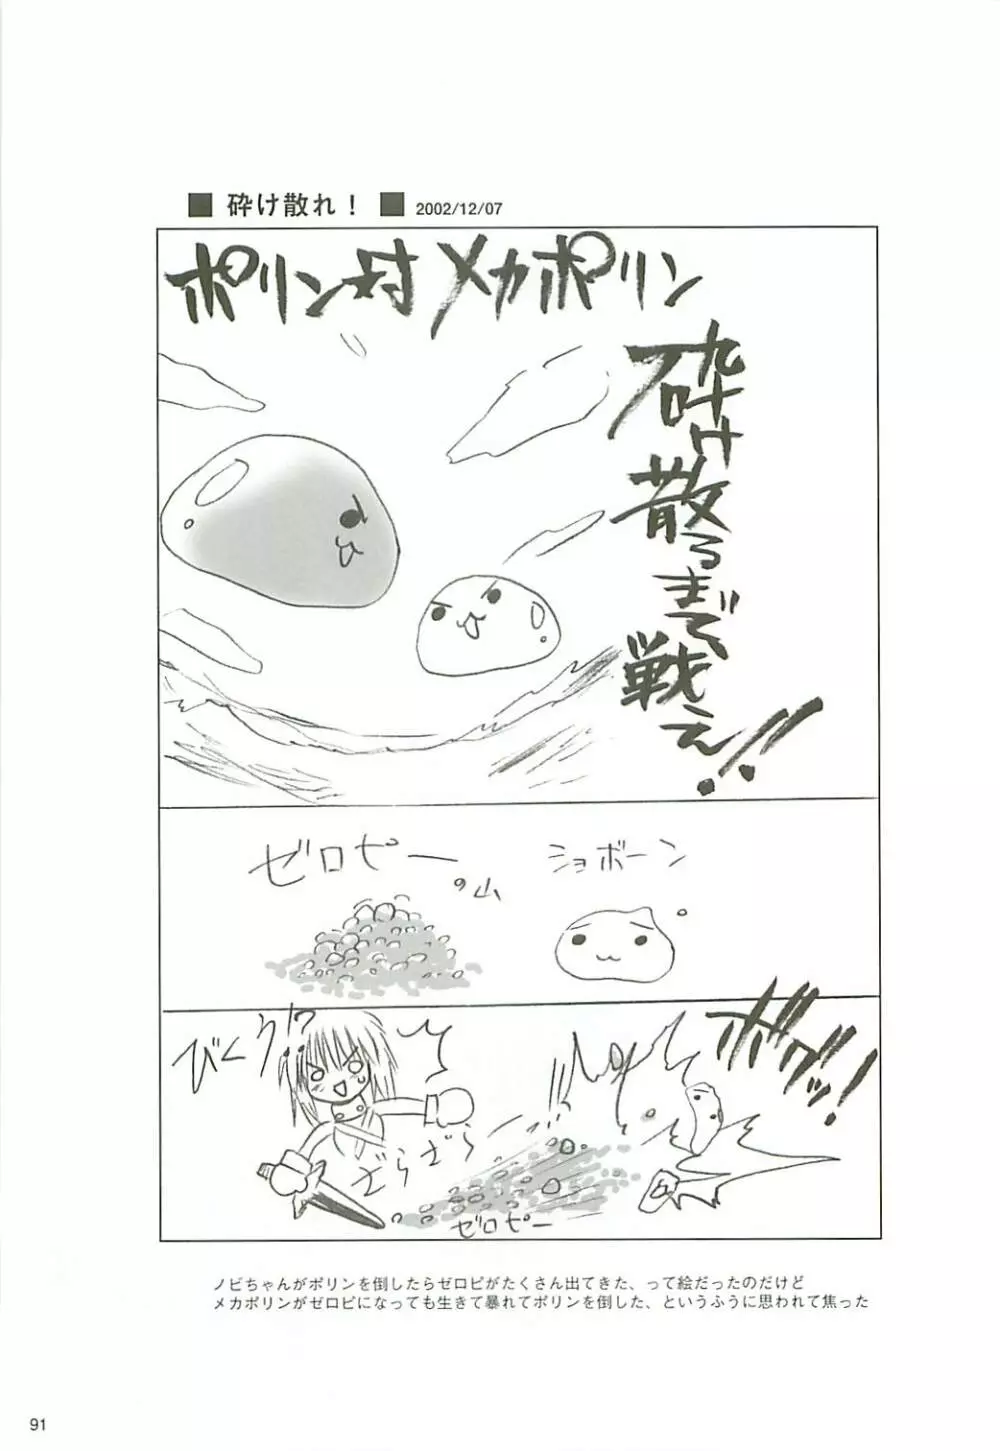 ■ 砕け散れ！ ■ 2002/12/07
ポリン対メカポリン
砕け散るまで戦え!!
ゼロピーの山
ショボーン
びくぅ!?
ボグッ!
ざらざら
ゼロピー
ノビちゃんがポリンを倒したらゼロピがたくさん出てきた、って絵だったのだけど
メカポリンがゼロピになっても生きて暴れてポリンを倒した、というふうに思われて焦った
91